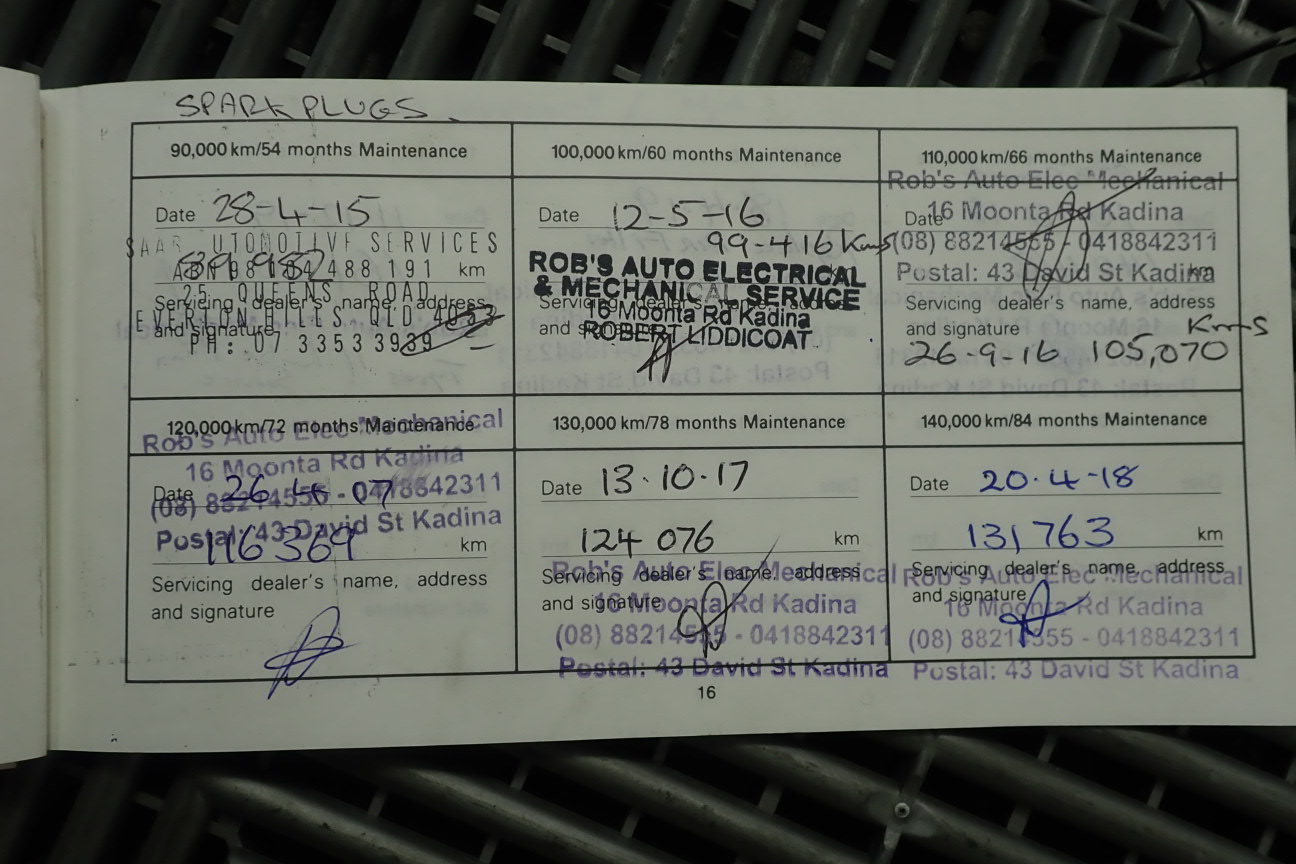 SPARK PLUGS
90,000 km/54 months Maintenance
Date 28-4-15
SAAS UTOMOTIVE SERVICES
488 191 km
25 QUEENS ROAD
Servicing dealer's name, address
EVERTON HILLS QLD 4053
and signature
PH: 07 3353 3939
100,000 km/60 months Maintenance
Date 12-5-16
99-416 Kms
ROB'S AUTO ELECTRICAL
& MECHANICAL SERVICE
Servicing dealer's name, address
16 Moonta Rd Kadina
and signature
ROBERT LIDDICOAT
110,000 km/66 months Maintenance
Rob's Auto Elec Mechanical
Date 16 Moonta Rd Kadina
(08) 88214555 - 0418842311
Postal: 43 David St Kadina
km
Servicing dealer's name, address
and signature
Kms
26-9-16 105,070
120,000 km/72 months Maintenance
Rob's Auto Elec Mechanical
16 Moonta Rd Kadina
Date 26 07
(08) 88214555 - 0418842311
Postal: 43 David St Kadina
116 369 km
Servicing dealer's name, address
and signature
130,000 km/78 months Maintenance
Date 13.10.17
124 076 km
Rob's Auto Elec Mechanical
Servicing dealer's name, address
and signature
16 Moonta Rd Kadina
(08) 88214555 - 0418842311
Postal: 43 David St Kadina
140,000 km/84 months Maintenance
Date 20.4-18
131 763 km
Servicing dealer's name, address
Rob's Auto Elec Mechanical
and signature
16 Moonta Rd Kadina
(08) 88214555 - 0418842311
Postal: 43 David St Kadina
16